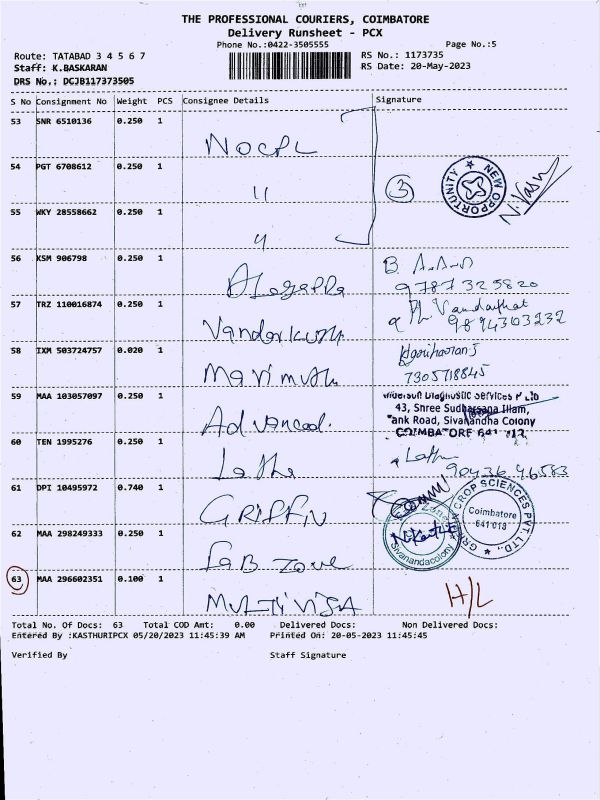 THE PROFESSIONAL COURIERS, COIMBATORE
Delivery Runsheet - PCX
Phone No.:0422-3505555 Page No.:5
Route: TATABAD 3 4 5 6 7 RS No.: 1173735
Staff: K.BASKARAN RS Date: 20-May-2023
DRS No.: DCJB117373505
S No Consignment No Weight PCS Consignee Details Signature
53 SNR 6510136 0.250 1
NOCPL
54 PGT 6708612 0.250 1
"
3
NEW OPPORTUNITY
N.Vasu
55 WKY 28558662 0.250 1
"
56 KSM 906798 0.250 1
Alagappa
B.
9787325820
57 TRZ 110016874 0.250 1
9894303232
58 IXM 503724757 0.020 1
Marimuthu
Hariharan S
7305718845
59 MAA 103057097 0.250 1
Advanced
Diagnostic Services P Ltd
43, Shree Sudharsana Illam,
ank Road, Sivanandha Colony
COIMBATORE 641 012
60 TEN 1995276 0.250 1
Latha
90436 46583
61 DPI 10495972 0.740 1
GRIFFIN
CROP SCIENCES PVT. LTD.,
Coimbatore
641 018
62 MAA 298249333 0.250 1
Lab Zone
Sivanandacolony
63 MAA 296602351 0.100 1
MULTIVISA
H/L
Total No. Of Docs: 63 Total COD Amt: 0.00 Delivered Docs: Non Delivered Docs:
Entered By :KASTHURIPCX 05/20/2023 11:45:39 AM Printed On: 20-05-2023 11:45:45
Verified By Staff Signature